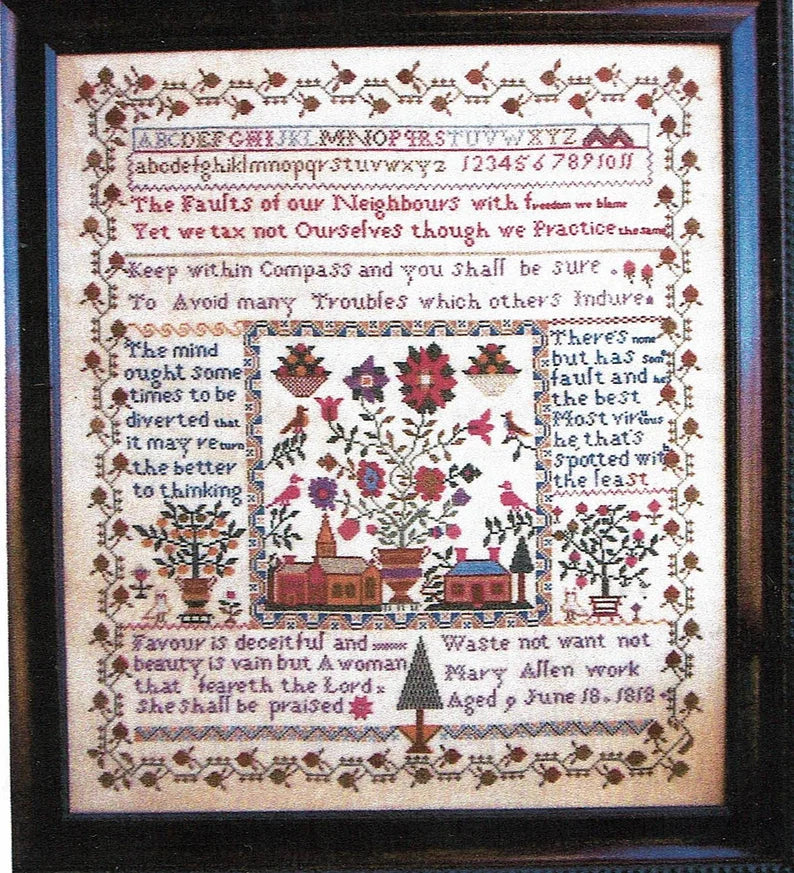 ABCDEFGHIJKLMNOPQRSTUVWXYZ
abcdefghiklmnopqrstuvwxyz 1234567891011
The Faults of our Neighbours with freedom we blame
Yet we tax not Ourselves though we Practice the same
Keep within Compass and you shall be sure
To Avoid many Troubles which others Indure
The mind
ought some
times to be
diverted that
it may return
the better
to thinking
There's none
but has som
fault and he's
the best
Most virtuous
he that's
spotted with
the least
Favour is deceitful and
beauty is vain but A woman
that feareth the Lord
she shall be praised
Waste not want not
Mary Allen work
Aged 9 June 18. 1818